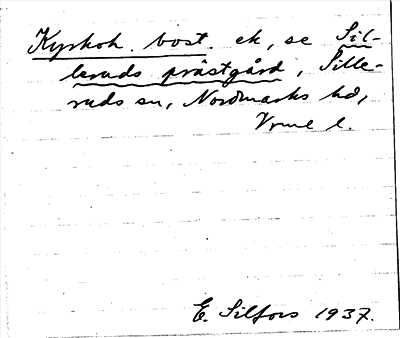 Kyrkoh. bost. ek, se Sil-
leruds prästgård, Sille-
ruds sn, Nordmarks hd,
Vrml l.
E. Silfors 1937.